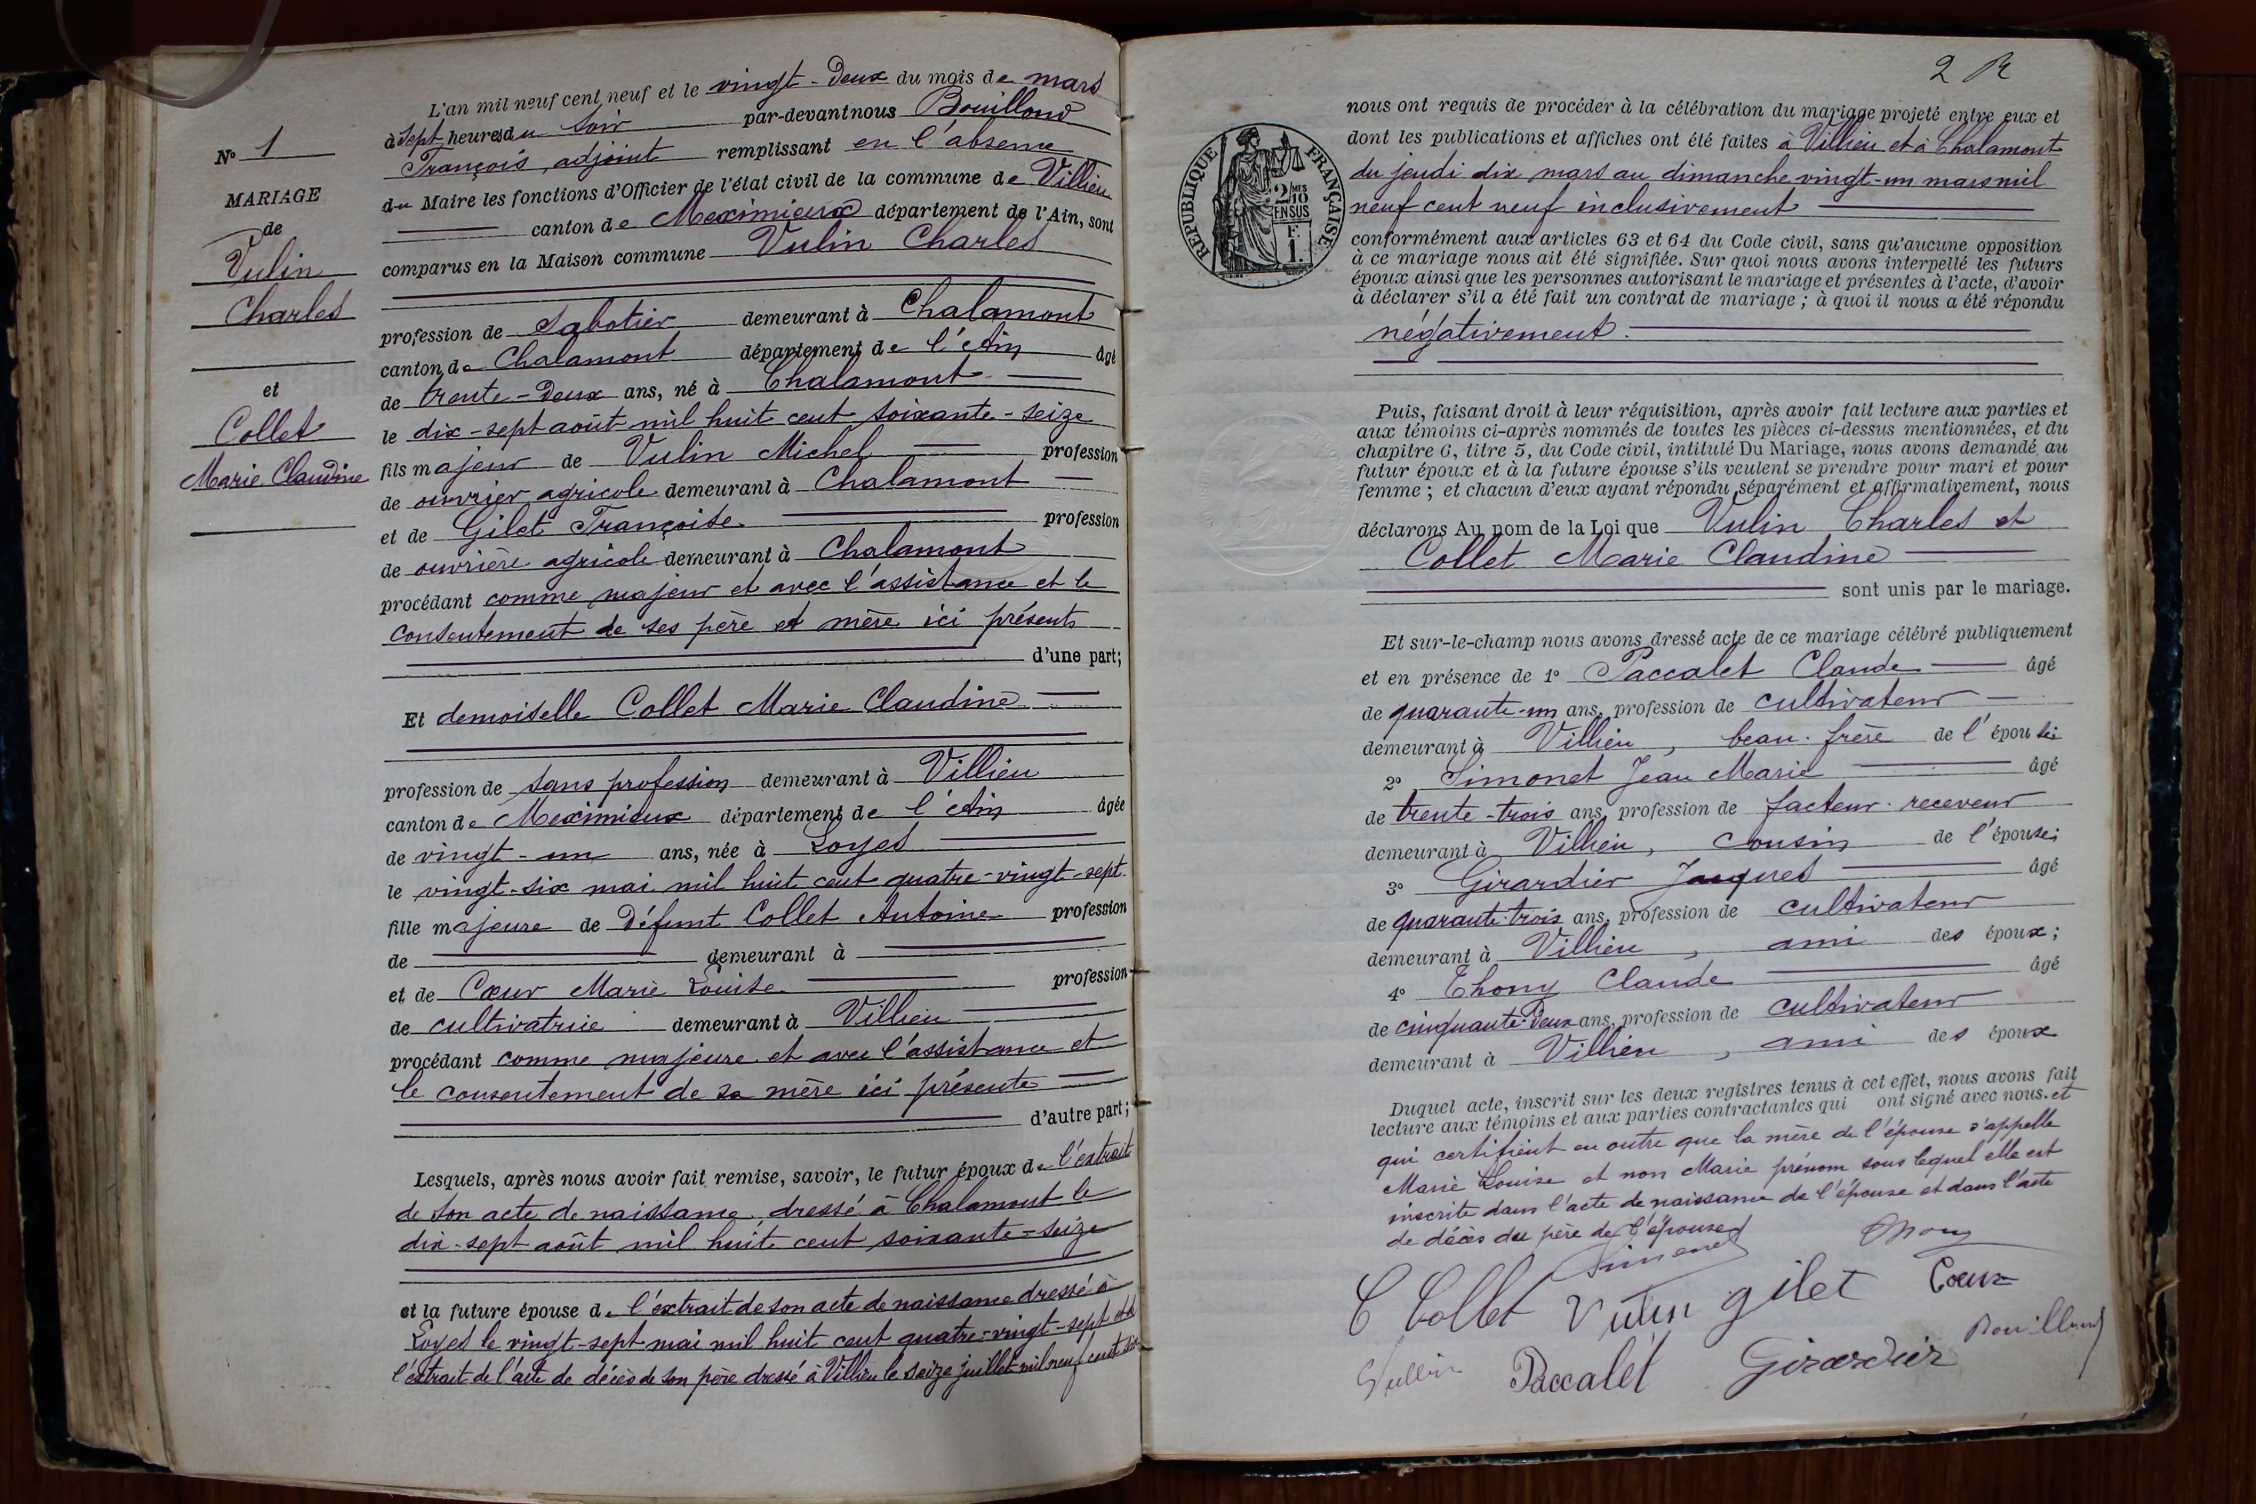 N° 1
MARIAGE
de
Vulin
Charles
et
Collet
Marie Claudine
L'an mil neuf cent neuf et le vingt-deux du mois de mars
à sept heures du soir par-devant nous Bouilloud
François, adjoint remplissant en l'absence
du Maire les fonctions d'Officier de l'état civil de la commune de Villieu
canton de Meximieux département de l'Ain, sont
comparus en la Maison commune Vulin Charles
profession de sabotier demeurant à Chalamont
canton de Chalamont département de l'Ain âgé
de trente-deux ans, né à Chalamont
le dix-sept août mil huit cent soixante-seize
fils majeur de Vulin Michel profession
de ouvrier agricole demeurant à Chalamont
et de Gilet Françoise profession
de ouvrière agricole demeurant à Chalamont
procédant comme majeur et avec l'assistance et le
consentement de ses père et mère ici présents
d'une part;
Et demoiselle Collet Marie Claudine
profession de sans profession demeurant à Villieu
canton de Meximieux département de l'Ain âgée
de vingt-un ans, née à Loyes
le vingt-six mai mil huit cent quatre-vingt-sept
fille majeure de défunt Collet Antoine profession
de demeurant à
et de Cœur Marie Louise profession
de cultivatrice demeurant à Villieu
procédant comme majeure et avec l'assistance et
le consentement de sa mère ici présente
d'autre part;
Lesquels, après nous avoir fait remise, savoir, le futur époux de l'extrait
de son acte de naissance dressé à Chalamont le
dix-sept août mil huit cent soixante-seize
et la future épouse de l'extrait de son acte de naissance dressé à
Loyes le vingt-sept mai mil huit cent quatre-vingt-sept et de
l'extrait de l'acte de décès de son père dressé à Villieu le seize juillet mil neuf cent
2 R
RÉPUBLIQUE FRANÇAISE
2/10MES
EN SUS
F.
1.
nous ont requis de procéder à la célébration du mariage projeté entre eux et
dont les publications et affiches ont été faites à Villieu et à Chalamont
du jeudi dix mars au dimanche vingt-un mars mil
neuf cent neuf inclusivement
conformément aux articles 63 et 64 du Code civil, sans qu'aucune opposition
à ce mariage nous ait été signifiée. Sur quoi nous avons interpellé les futurs
époux ainsi que les personnes autorisant le mariage et présentes à l'acte, d'avoir
à déclarer s'il a été fait un contrat de mariage ; à quoi il nous a été répondu
négativement.
Puis, faisant droit à leur réquisition, après avoir fait lecture aux parties et
aux témoins ci-après nommés de toutes les pièces ci-dessus mentionnées, et du
chapitre 6, titre 5, du Code civil, intitulé Du Mariage, nous avons demandé au
futur époux et à la future épouse s'ils veulent se prendre pour mari et pour
femme ; et chacun d'eux ayant répondu séparément et affirmativement, nous
déclarons Au nom de la Loi que Vulin Charles et
Collet Marie Claudine
sont unis par le mariage.
Et sur-le-champ nous avons dressé acte de ce mariage célébré publiquement
et en présence de 1° Paccalet Claude âgé
de quarante-un ans, profession de cultivateur
demeurant à Villieu, beau-frère de l'épouse;
2° Simonet Jean Marie âgé
de trente-trois ans, profession de facteur-receveur
demeurant à Villieu, cousin de l'épouse;
3° Girardier Jacques âgé
de quarante-trois ans, profession de cultivateur
demeurant à Villieu, ami des époux;
4° Thony Claude âgé
de cinquante-deux ans, profession de cultivateur
demeurant à Villieu, ami des époux
Duquel acte, inscrit sur les deux registres tenus à cet effet, nous avons fait
lecture aux témoins et aux parties contractantes qui ont signé avec nous. et
qui certifient en outre que la mère de l'épouse s'appelle
Marie Louise et non Marie prénom sous lequel elle est
inscrite dans l'acte de naissance de l'épouse et dans l'acte
de décès du père de l'épouse
Simonet Thony
C Collet Vulin gilet Cœur
Vullin Paccalet Girardier Bouilloud